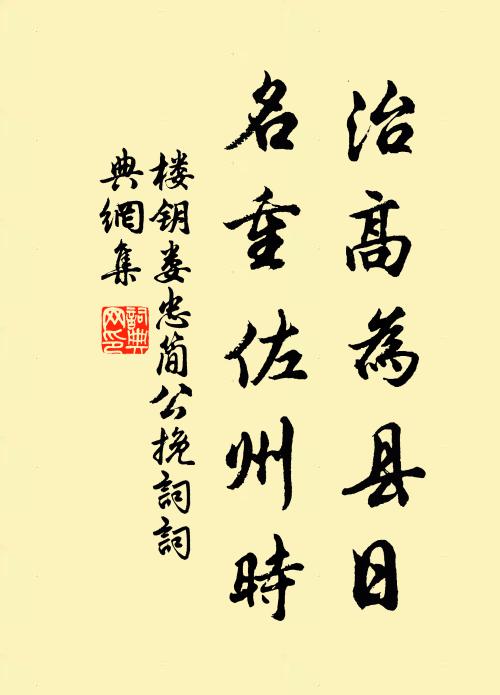 治高為县日
名重佐州時
楼钥娄忠简公挽詞詞
典網集
詞典
网印